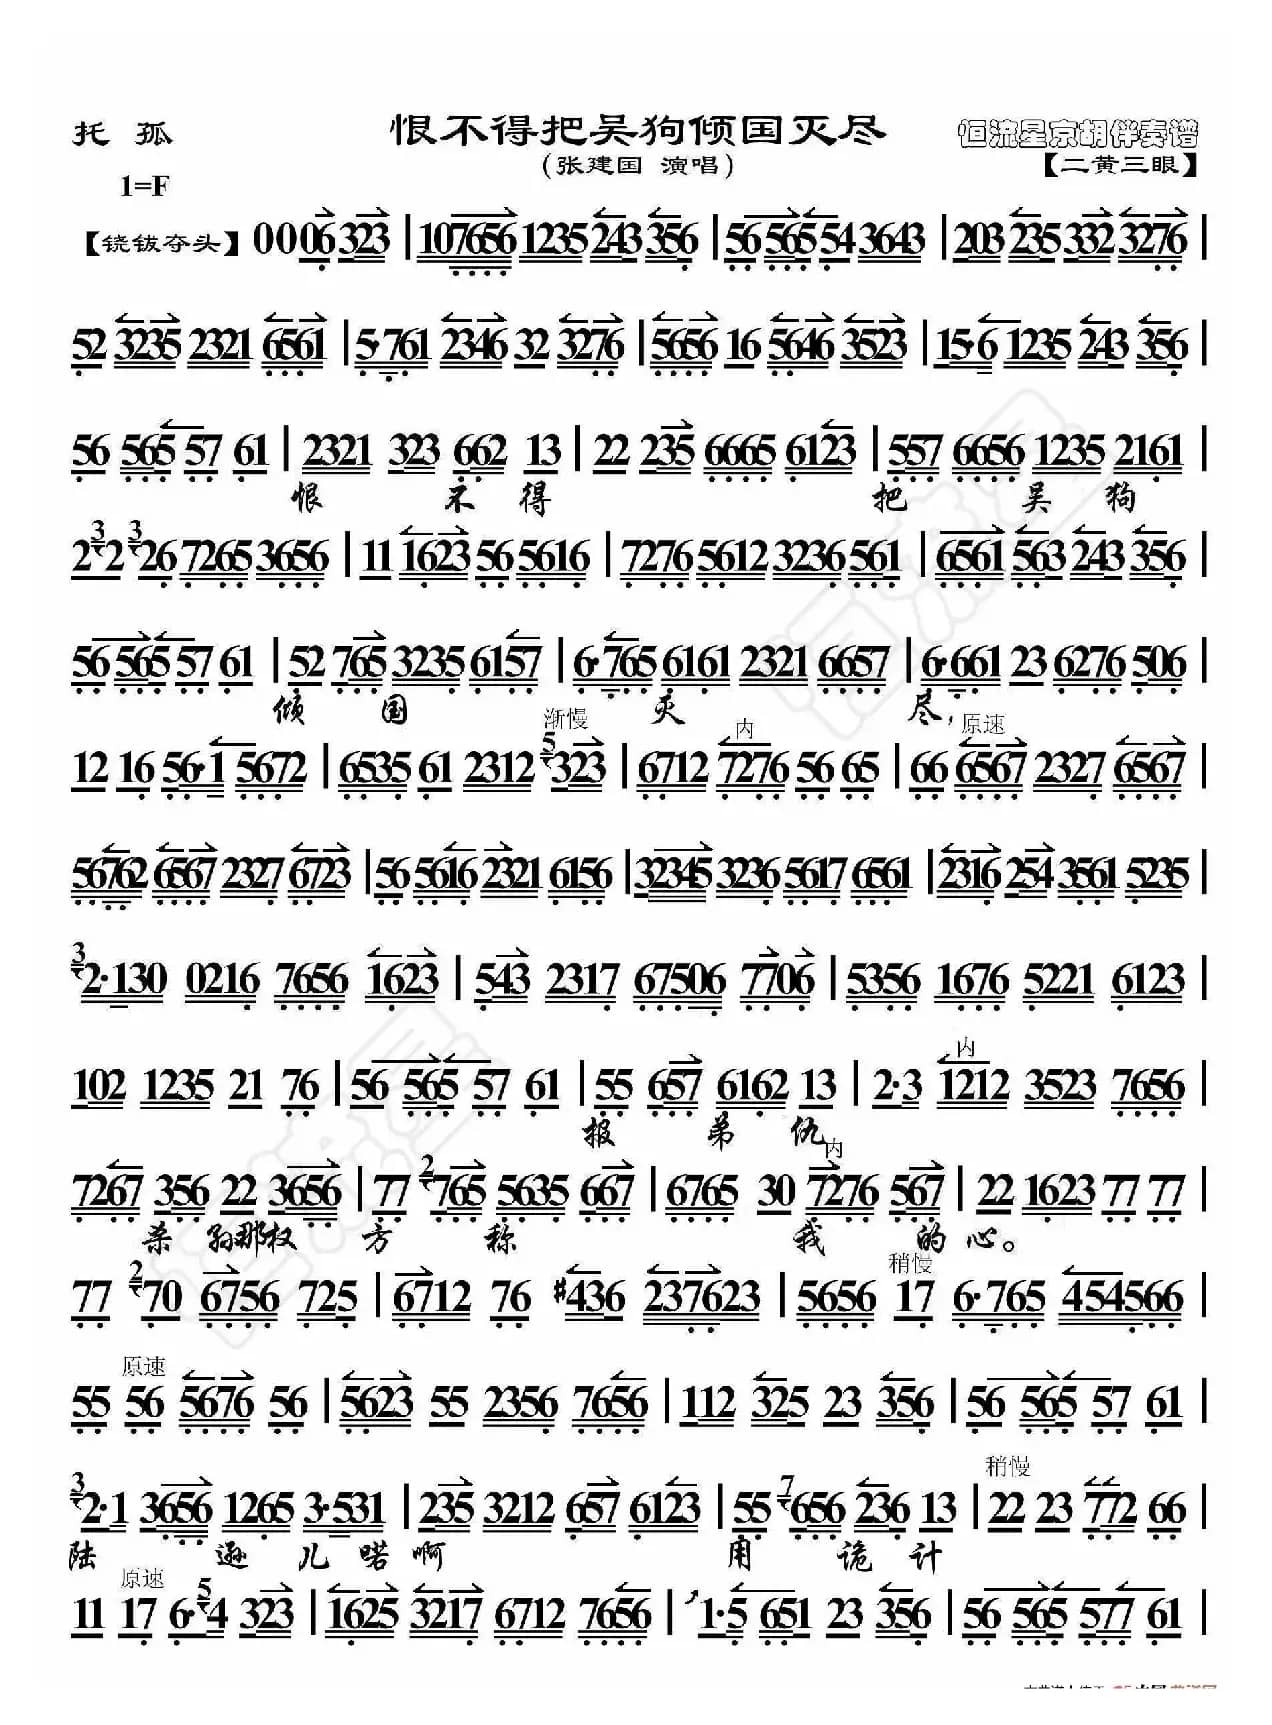 托 孤
恨不得把吴狗倾国灭尽
恒流星京胡伴奏谱
(张建国 演唱)
【二黄三眼】
1=F
【铙钹夺头】 0 0 06 323 | 107656 1235 243 356 | 56 565 54 3643 | 203 235 332 3276 |
52 3235 2321 6561 | 5·761 2346 32 3276 | 5656 16 5646 3523 | 15·6 1235 243 356 |
56 565 57 61 | 2321 323 662 13 | 22 235 6665 6123 | 557 6656 1235 2161 |
恨 不 得 把 吴 狗
3 3
22 26 7265 3656 | 11 1623 56 5616 | 7276 5612 3236 561 | 6561 563 243 356 |
56 565 57 61 | 52 765 3235 6157 | 6·765 6161 2321 6657 | 6·661 23 6276 506 |
倾 国 灭 尽,
渐慢 内 原速
5
12 16 56·1 5672 | 6535 61 2312 323 | 6712 7276 56 65 | 66 6567 2327 6567 |
56762 6567 2327 6723 | 56 5616 2321 6156 | 32345 3236 5617 6561 | 2316 254 3561 5235 |
3
2·130 0216 7656 1623 | 543 2317 67506 7706 | 5356 1676 5221 6123 |
内
102 1235 21 76 | 56 565 57 61 | 55 657 6162 13 | 2·3 1212 3523 7656 |
报 弟 仇
内
2
7267 356 22 3656 | 77 765 5635 667 | 6765 30 7276 567 | 22 1623 77 77 |
杀 孙那权 方 称 我 的 心。
稍慢
2
77 70 6756 725 | 6712 76 #436 237623 | 5656 17 6·765 454566 |
原速
55 56 5676 56 | 5623 55 2356 7656 | 112 325 23 356 | 56 565 57 61 |
稍慢
3 7
2·1 3656 1265 3·531 | 235 3212 657 6123 | 55 656 236 13 | 22 23 772 66 |
陆 逊 儿 喏 啊 用 诡 计
原速
5
11 17 6·4 323 | 1625 3217 6712 7656 | 1·5 651 23 356 | 56 565 577 61 |